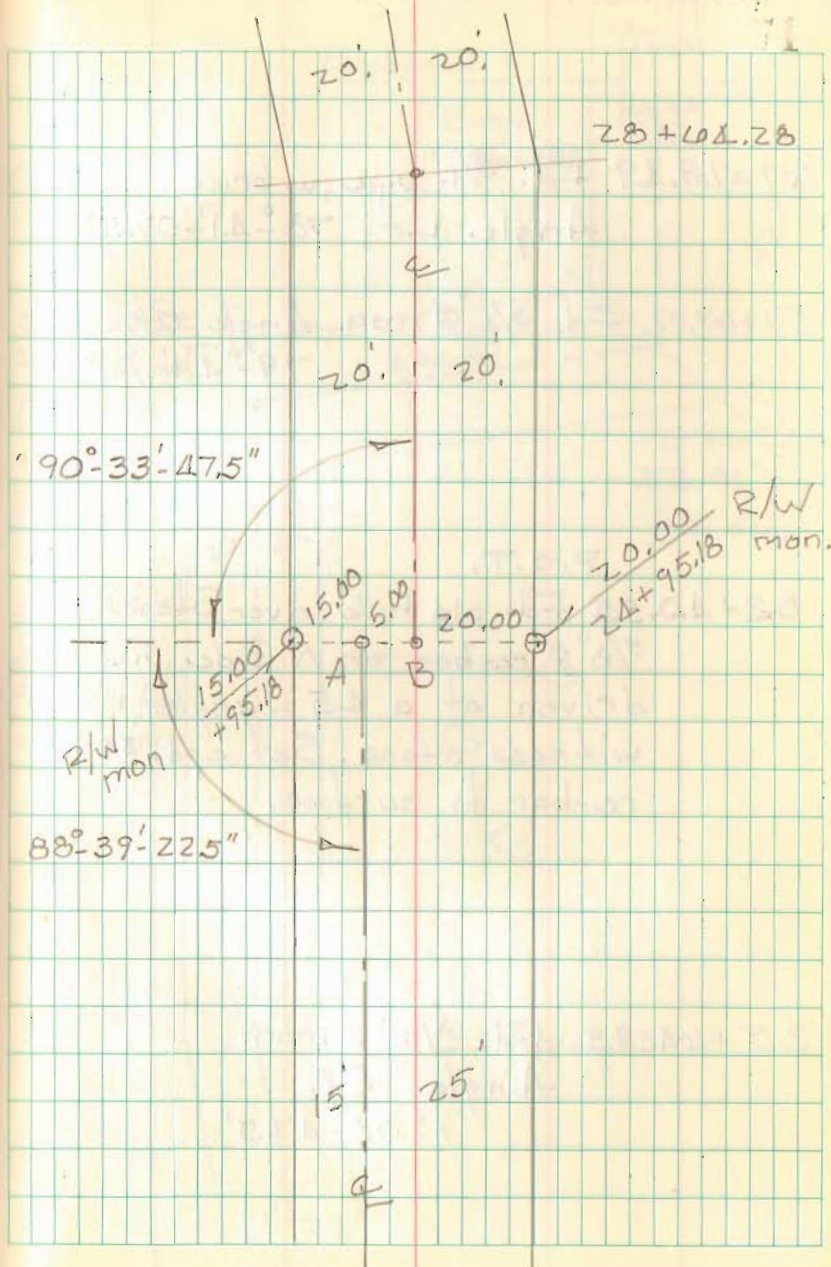 71
20'. 20'.
28+64.28
℄
20'. 20'.
90°-33'-47.5"
R/W
mon.
20.00
24+95.18
15.00 5.00 20.00
A B
15.00
+95.18
R/W
mon
88°-39'-22.5"
15' 25'
℄